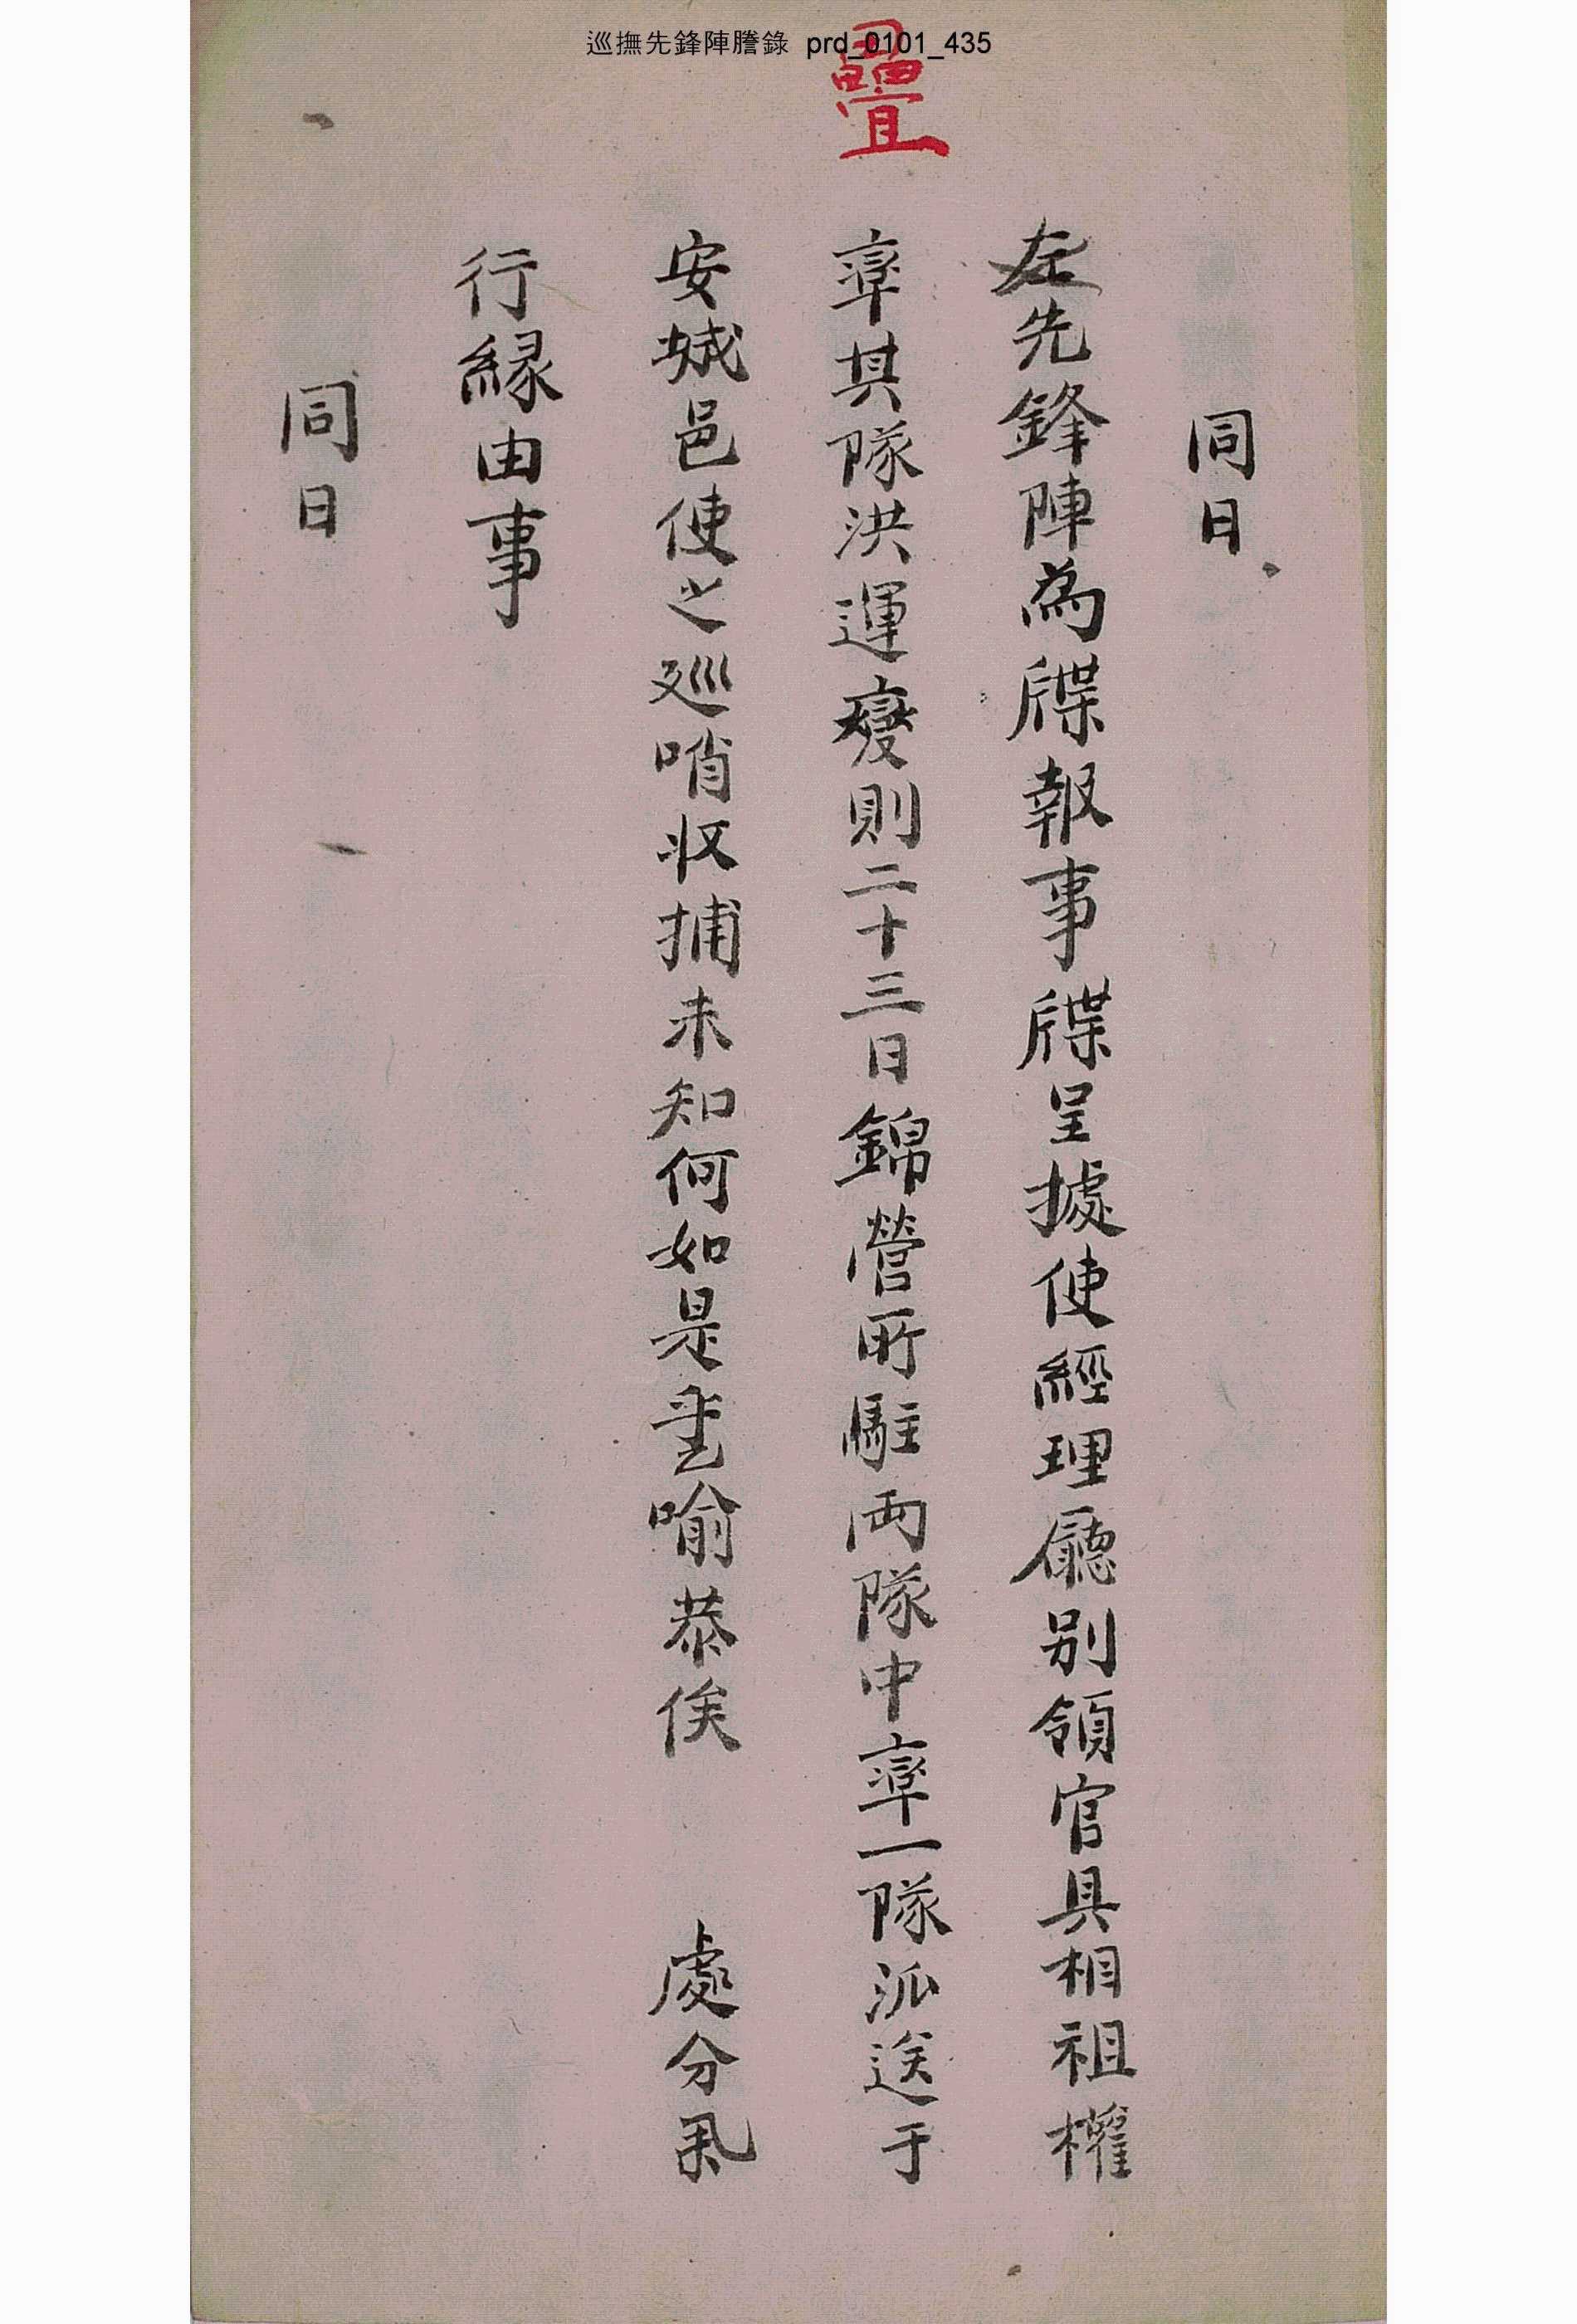 巡撫先鋒陣謄錄 prd_0101_435
疊
同日
左先鋒陣爲牒報事牒呈據使經理廳別領官具相祖權
率其隊洪運變則二十三日錦營所駐両隊中率一隊派送于
安城邑使之巡哨收捕未知何如是喩恭俟 處分
行緣由事
同日